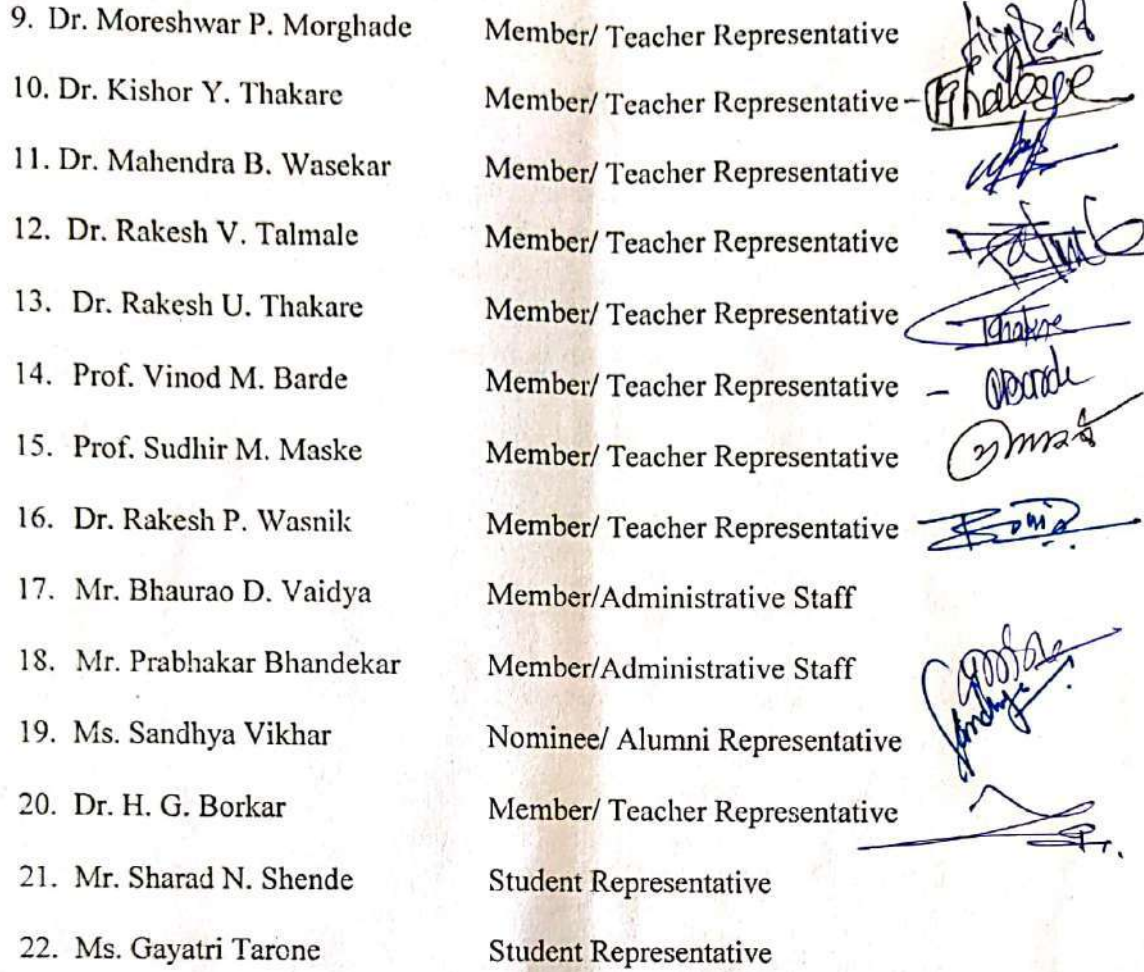 9. Dr. Moreshwar P. Morghade Member/ Teacher Representative
10. Dr. Kishor Y. Thakare Member/ Teacher Representative - Thakare
11. Dr. Mahendra B. Wasekar Member/ Teacher Representative
12. Dr. Rakesh V. Talmale Member/ Teacher Representative
13. Dr. Rakesh U. Thakare Member/ Teacher Representative Thakare
14. Prof. Vinod M. Barde Member/ Teacher Representative -
15. Prof. Sudhir M. Maske Member/ Teacher Representative
16. Dr. Rakesh P. Wasnik Member/ Teacher Representative
17. Mr. Bhaurao D. Vaidya Member/Administrative Staff
18. Mr. Prabhakar Bhandekar Member/Administrative Staff
19. Ms. Sandhya Vikhar Nominee/ Alumni Representative Sandhya
20. Dr. H. G. Borkar Member/ Teacher Representative
21. Mr. Sharad N. Shende Student Representative
22. Ms. Gayatri Tarone Student Representative